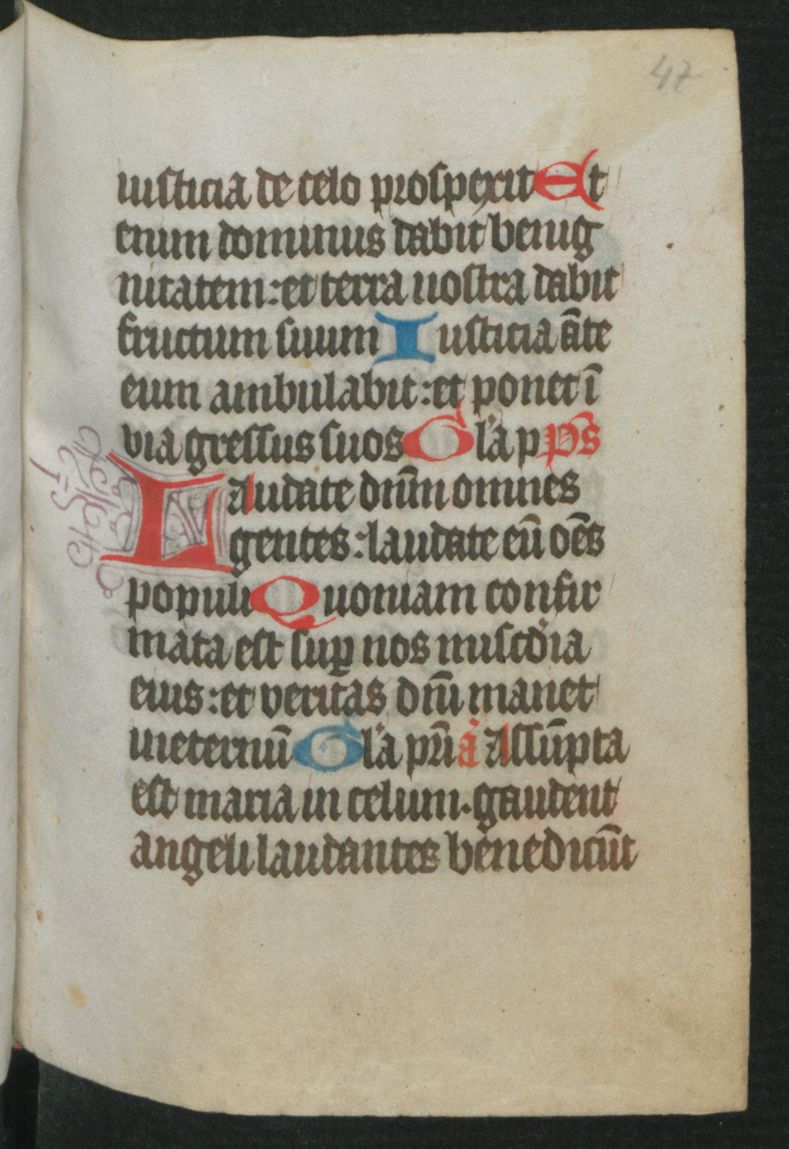 47
iusticia de celo prosperit Et
enim dominus dabit benig
nitatem: et terra nostra dabit
fructum suum Iusticia āte
eum ambulabit: et ponet ī
via gressus suos Gl'a p p̄s
Laudate dn̄m omnes
gentes: laudate eū oēs
populi Quoniam confir
mata est suꝑ nos miscd'ia
eius: et veritas dn̄i manet
ineternū Gl'a pr̄i a Assūpta
est maria in celum. gaudent
angeli laudantes benedicūt